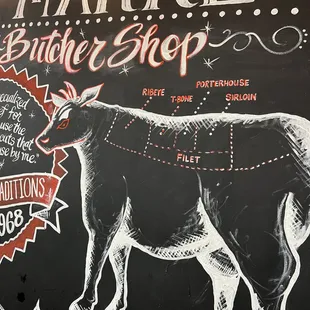 Butcher Shop
RIBEYE
T-BONE
PORTERHOUSE
SIRLOIN
FILET
for
use the
cuts that
use by me."
ADITIONS
1968